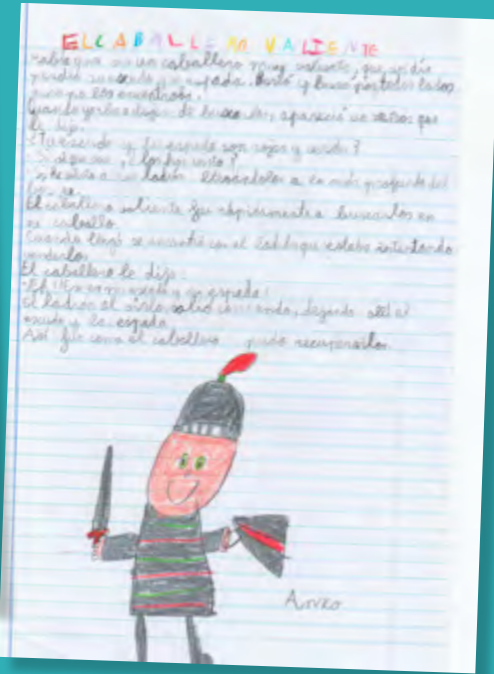 EL CABALLERO VALIENTE
Había una vez un caballero muy valiente, que un día
perdió su escudo y su espada. Buscó y buscó por todos lados
pero no los encontraba.
Cuando ya iba a dejar de buscarlos, apareció un que
le dijo:
¿Tu escudo y tu espada son rojos y verdes?
- Si, ¿los has visto?
- he visto a un ladrón llevándolos a lo más profundo del
El caballero valiente fue rápidamente a buscarlos en
su caballo.
Cuando llegó se encontró con el ladrón que estaba intentando
venderlos.
El caballero le dijo:
mi escudo y mi espada!
El ladrón al oirlo salió corriendo, dejando allí el
escudo y la espada.
Así fue como el caballero pudo recuperarlos.